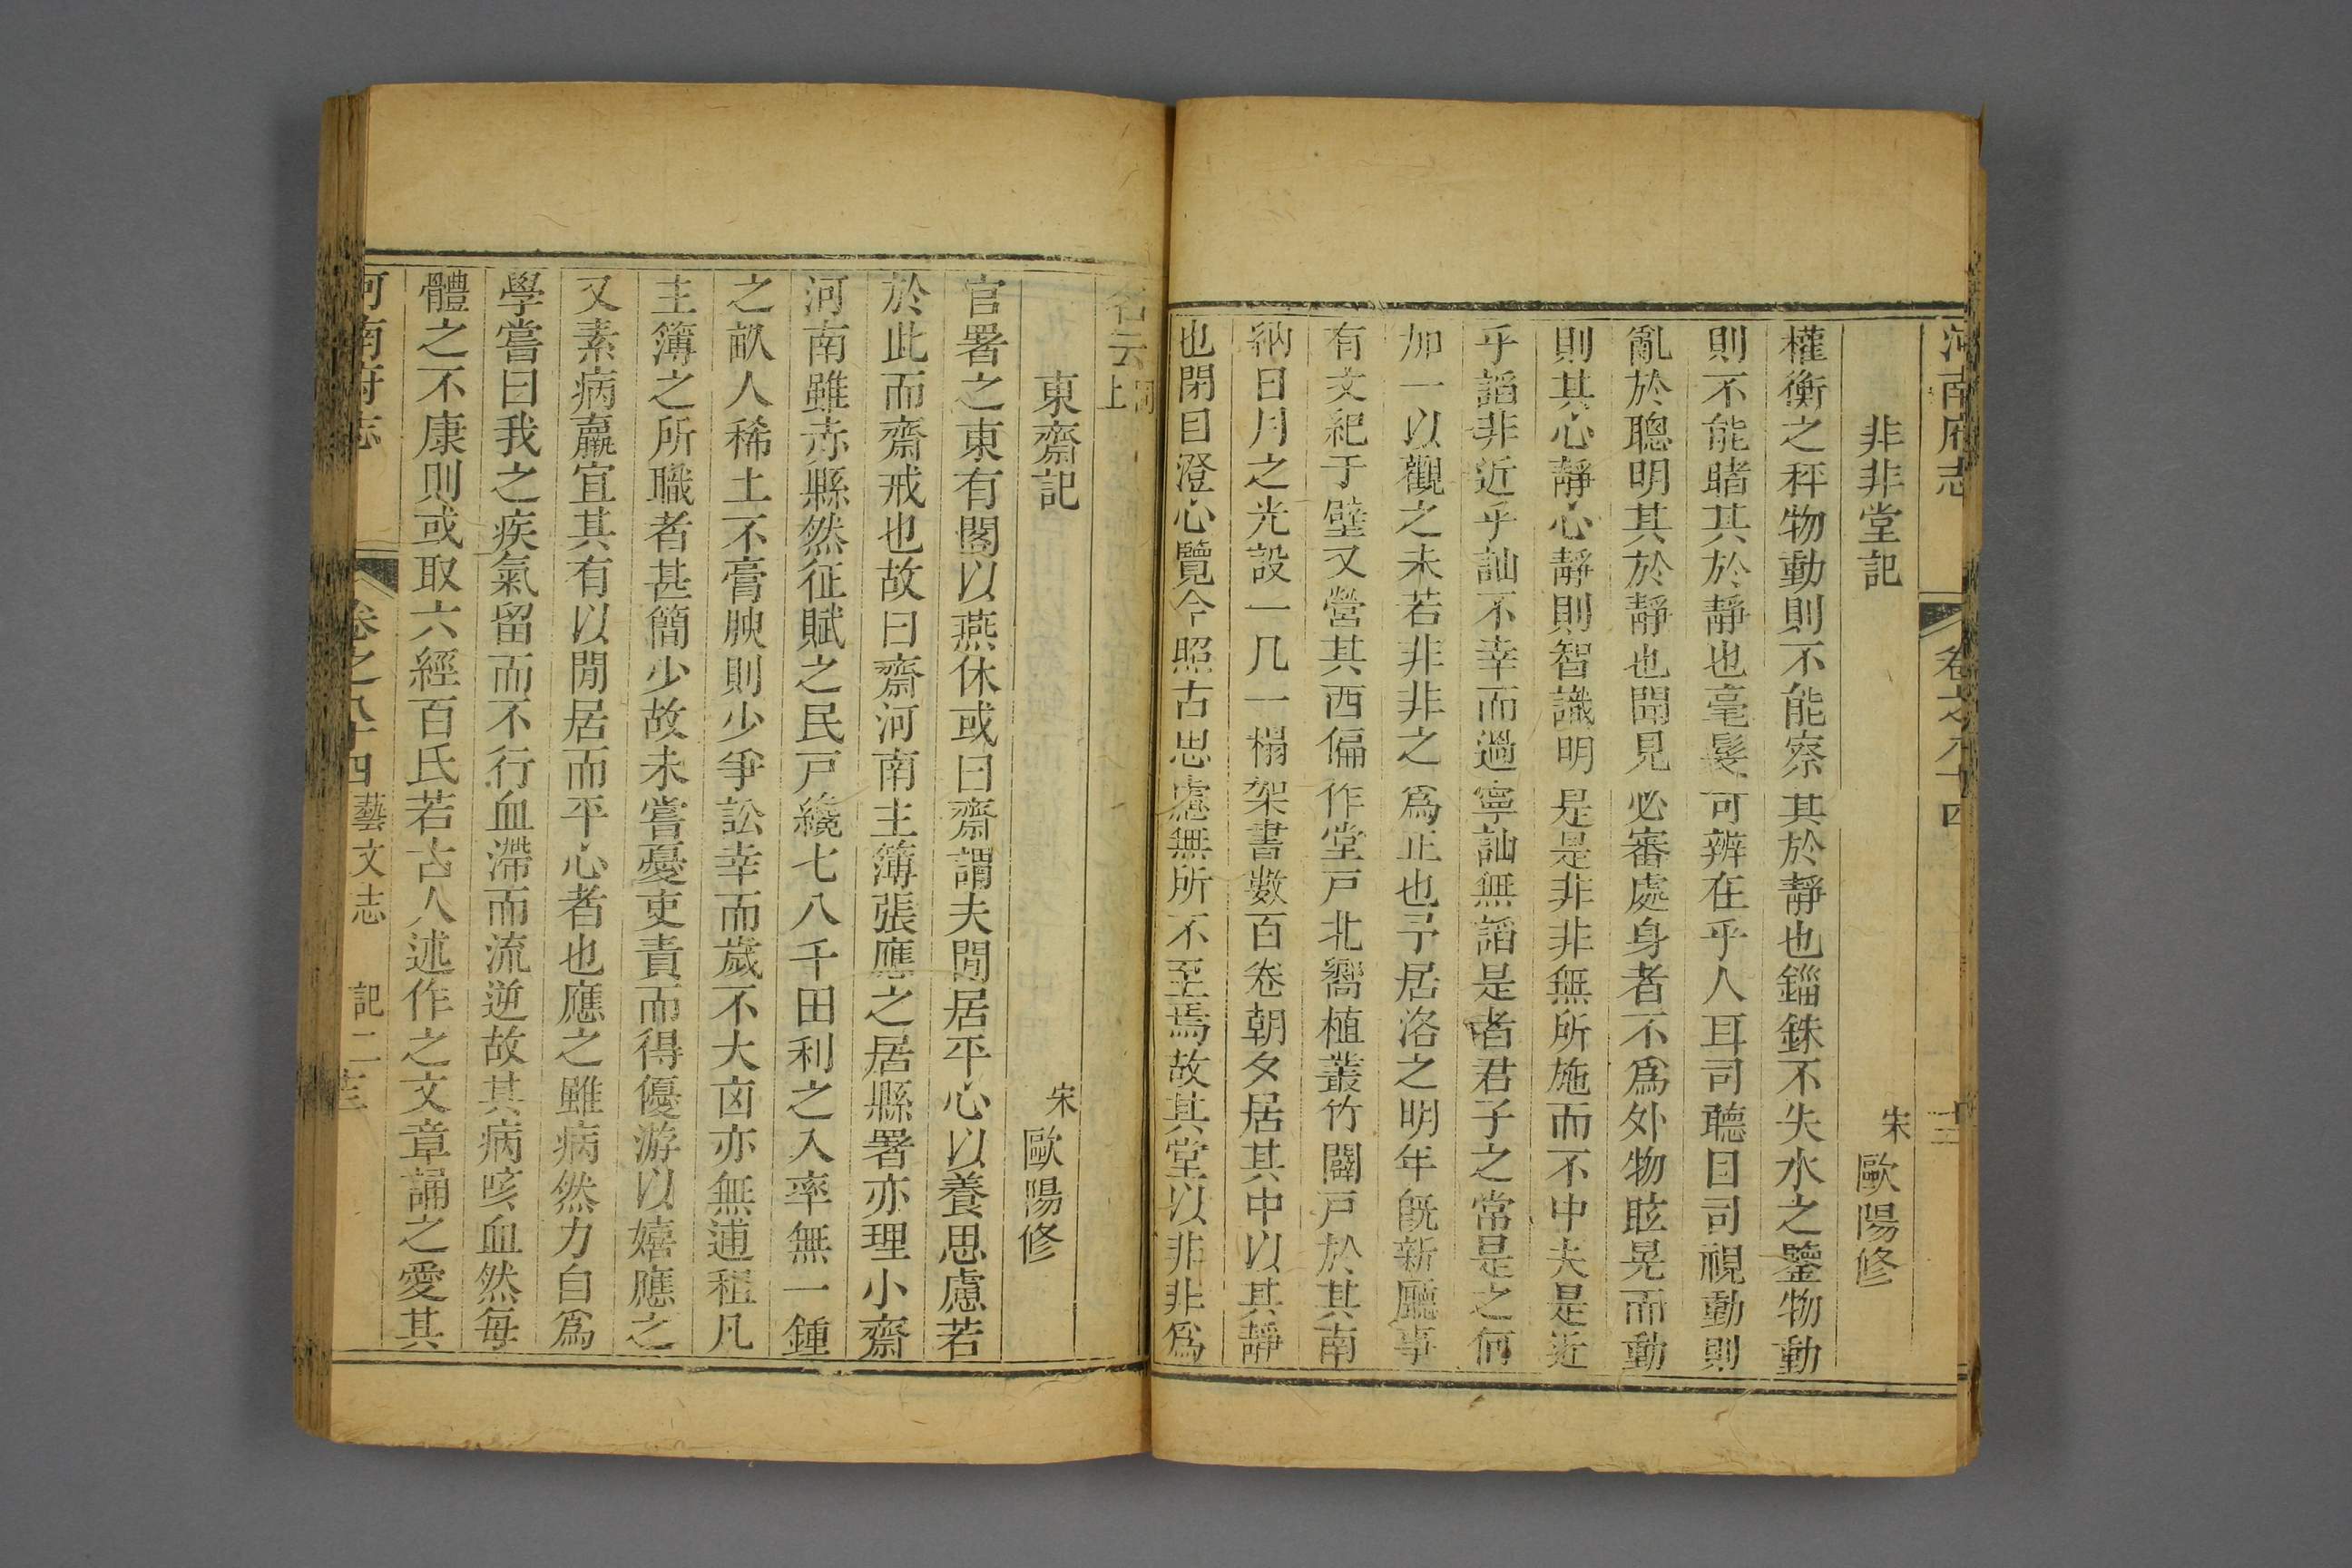 河南府志 卷之八十四 十三
非非堂記 宋 歐陽修
權衡之秤物動則不能察其於靜也錙銖不失水之鑒物動
則不能睹其於靜也毫髮可辨在乎人耳司聽目司視動則
亂於聰明其於靜也聞見必審處身者不為外物眩晃而動
則其心靜心靜則智識明是是非非無所施而不中夫是近
乎謟非近乎訕不幸而過寧訕無謟是者君子之常是之何
加一以觀之未若非非之為正也予居洛之明年既新廳事
有文紀于壁又營其西偏作堂戸北嚮植叢竹闢戸於其南
納日月之光設一几一榻架書數百卷朝夕居其中以其靜
也閉目澄心覽今照古思慮無所不至焉故其堂以非非為
名云 同上
東齋記 宋 歐陽修
官署之東有閣以燕休或曰齋謂夫閒居平心以養思慮若
於此而齋戒也故曰齋河南主簿張應之居縣署亦理小齋
河南雖赤縣然征賦之民戸纔七八千田利之入率無一鍾
之畝人稀土不膏腴則少爭訟幸而歲不大凶亦無逋租凡
主簿之所職者甚簡少故未嘗憂吏責而得優游以嬉應之
又素病羸宜其有以閒居而平心者也應之雖病然力自為
學嘗曰我之疾氣留而不行血滯而流逆故其病咳血然每
體之不康則或取六經百氏若古人述作之文章誦之愛其
河南府志 卷之八十四 藝文志 記二